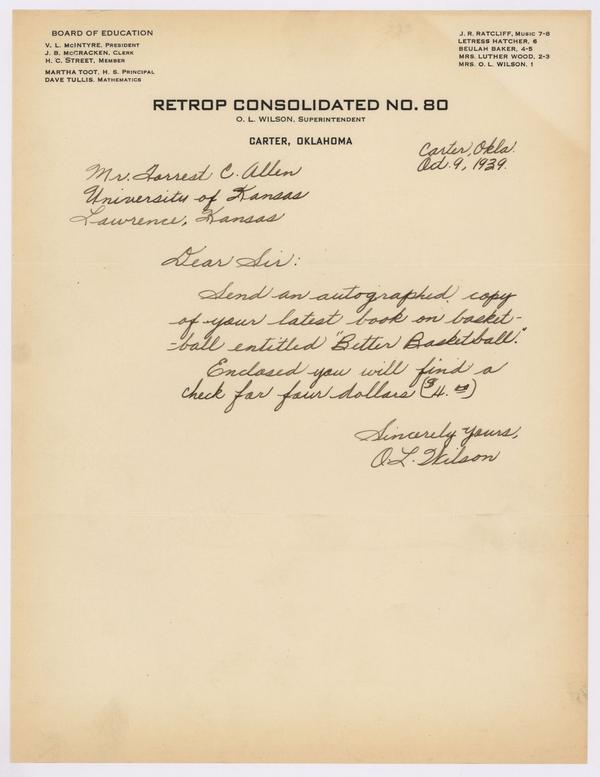 BOARD OF EDUCATION
V. L. McINTYRE, PRESIDENT
J. B. McCRACKEN, CLERK
H. C. STREET, MEMBER
MARTHA TOOT, H. S. PRINCIPAL
DAVE TULLIS, MATHEMATICS
J. R. RATCLIFF, MUSIC 7-8
LETRESS HATCHER, 6
BEULAH BAKER, 4-5
MRS. LUTHER WOOD, 2-3
MRS. O. L. WILSON, 1
RETROP CONSOLIDATED NO. 80
O. L. WILSON, SUPERINTENDENT
CARTER, OKLAHOMA
Carter, Okla.
Oct. 9, 1939.
Mr. Forrest C. Allen
University of Kansas
Lawrence, Kansas
Dear Sir:
Send an autographed copy
of your latest book on basket-
-ball entitled "Better Basketball."
Enclosed you will find a
check for four dollars ($4.00)
Sincerely yours,
O.L. Wilson